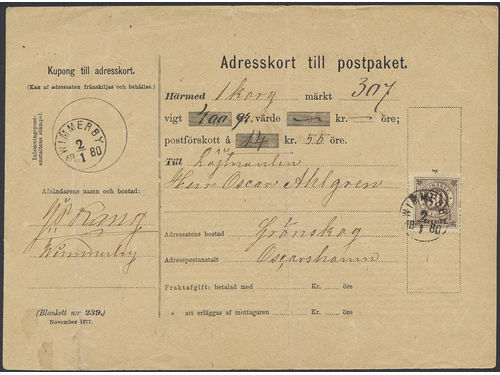 Kupong till adresskort.
(Kan af adressaten frånskiljas och behållas.)
Inlemningspost-
anstaltens stämpel.
WIMMERBY
2
1 80
Afsändarens namn och bostad:
Wimmerby
(Blankett n:r 239.)
November 1877.
Adresskort till postpaket.
Härmed 1 korg märkt 307
vigt 400 gr. värde — kr. — öre;
postförskott å 14 kr. 56 öre;
Till Löjtnanten
Herr Oscar Ahlgren
Adressatens bostad Grönskog
Adresspostanstalt Oscarshamn
Fraktafgift: betalad med Kr. öre
„ att erläggas af mottagaren Kr. öre
WIMMERBY
2
1 80